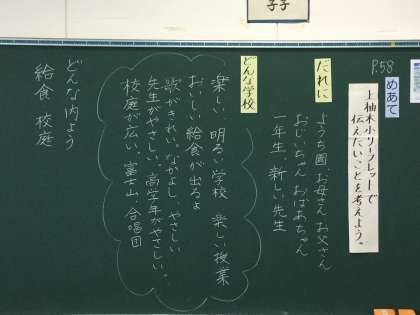 P.58
めあて
上柚木小リーフレットで
伝えたいことを考えよう。
だれに
ようち園、お母さん お父さん
おじいちゃん おばあちゃん
一年生、新しい先生
どんな学校
楽しい 明るい学校 楽しい授業
おいしい給食が出るよ
歌がきれい、なかよし、やさしい
先生がやさしい。高学年がやさしい。
校庭が広い、富士山、合唱団
どんな内よう
給食 校庭